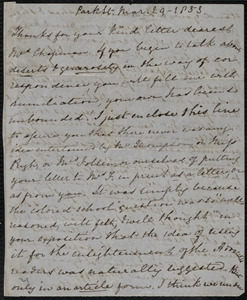 Park St. Mar. 29 - 1853
Thanks for your kind letter dearest
Mrs Chapman. If you begin to talk about
deserts & generosity in the way of cor-
respondence you will fill me with
humiliation, your own has been so
unbounded. I just enclose this line
to assure you that there never was any
idea entertained by Mr Thompson or Miss
Pugh or Mr Collins or ourselves of putting
your letter to Mr T. in print as a letter or
as from you. It was simply because
the colored school question was so well
reasoned, with & well thought
your exposition that the idea of using
it for the enlightenment of the Advocate
readers was naturally suggested, but
only in an article form. I think we